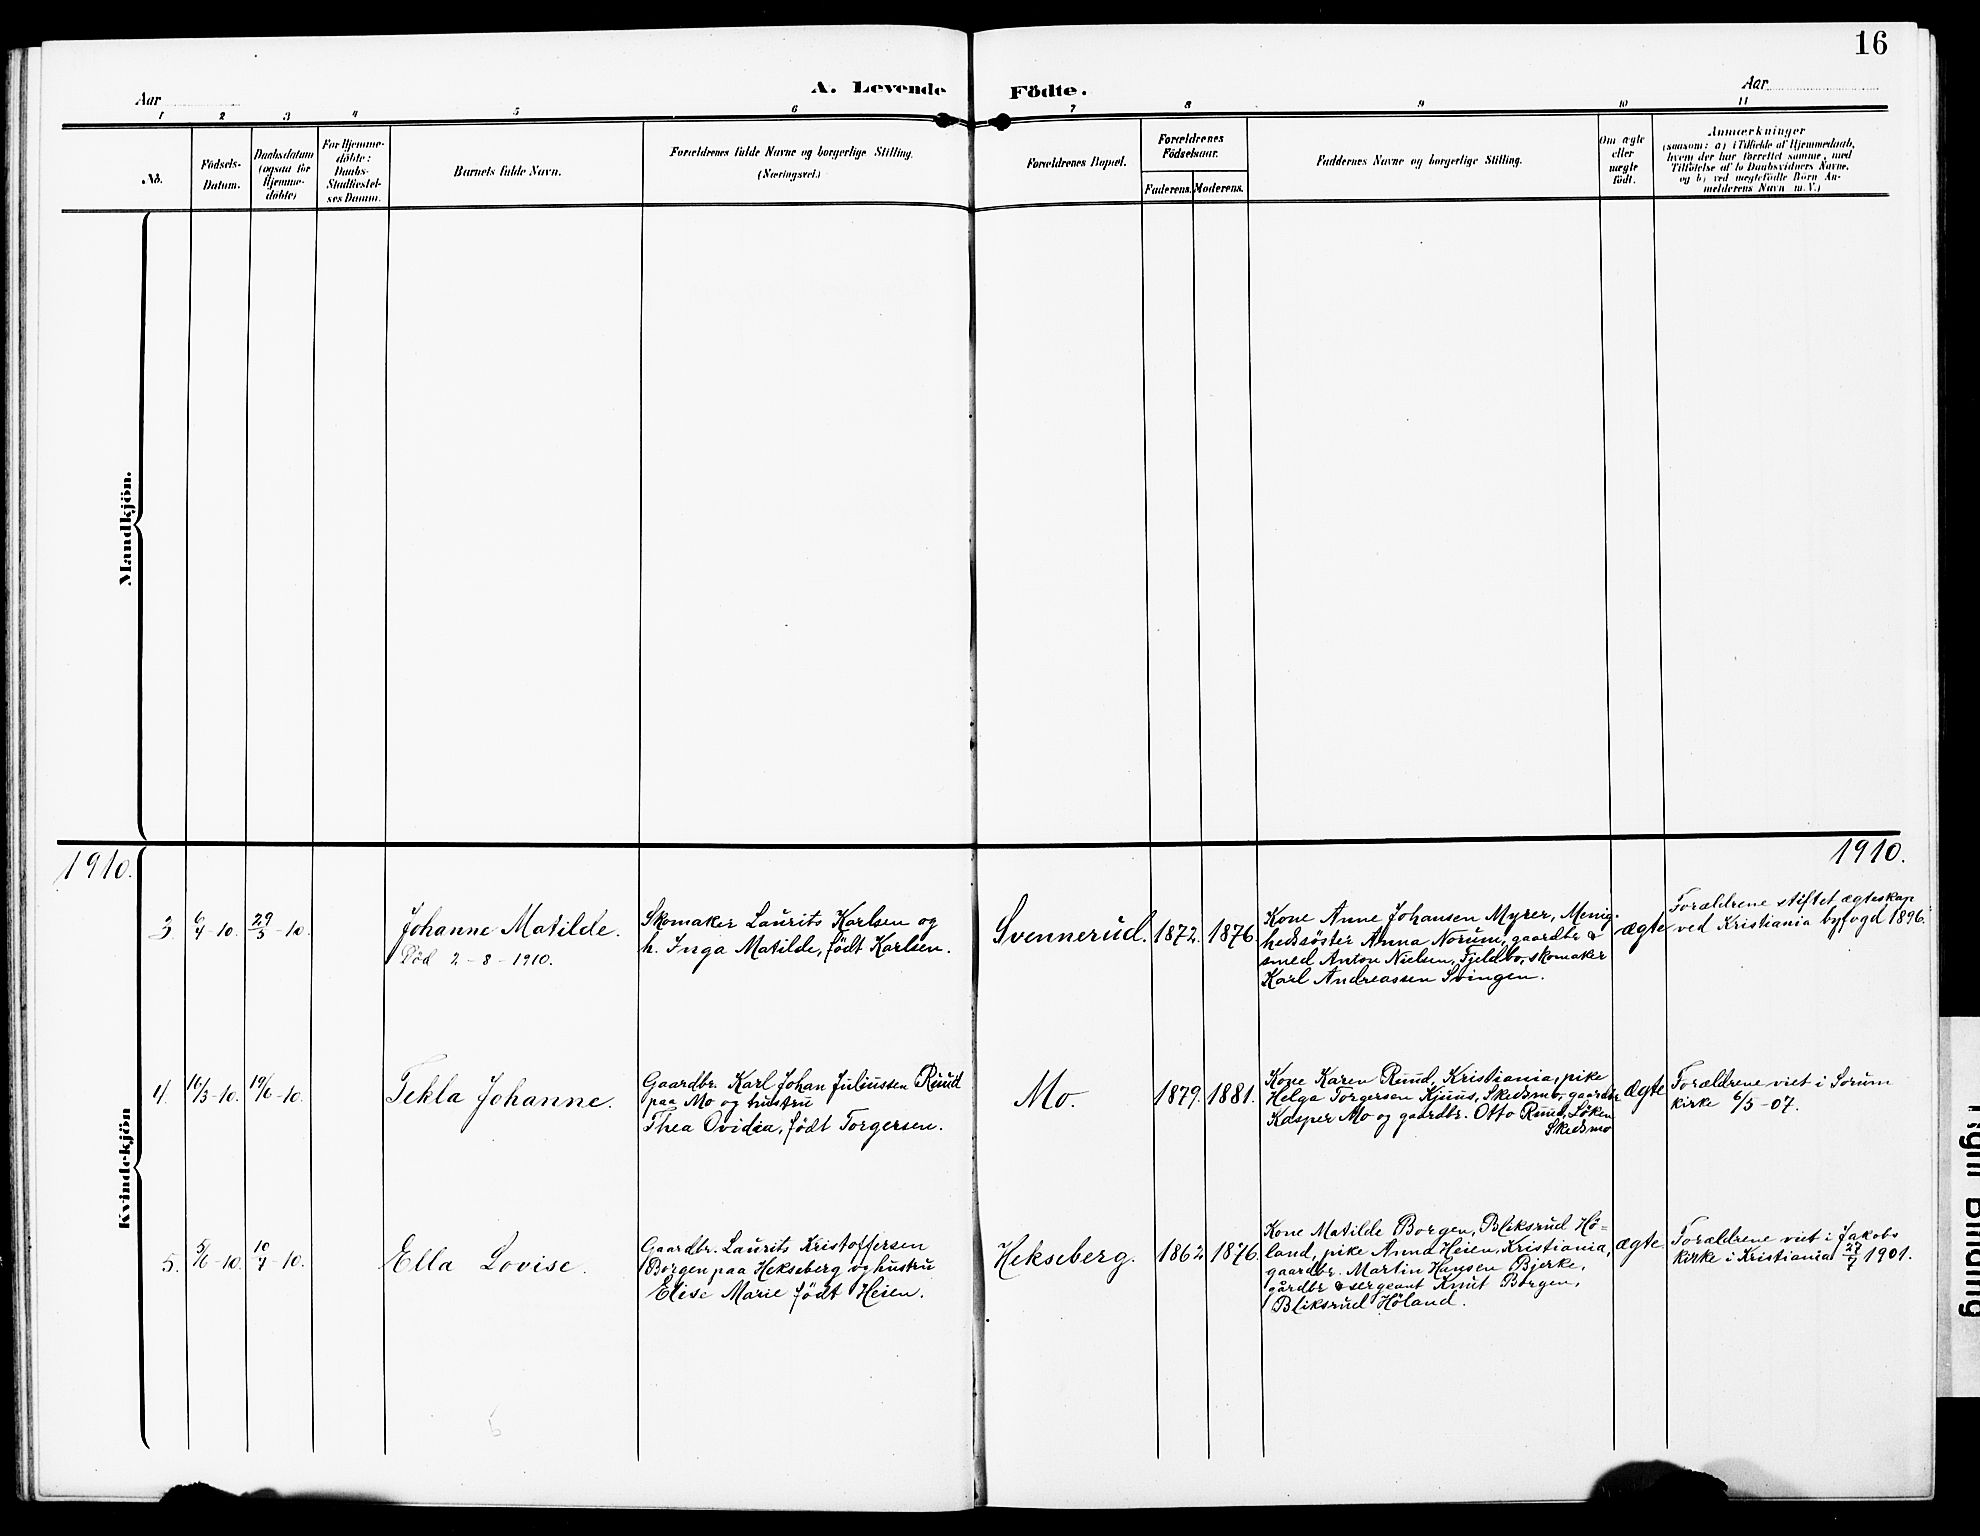 16
Aar
A. Levende Födte.
Aar
1 2 3 4 5 6 7 8 9 10 11
No.
Födsels-
Datum.
Daabsdatum
(ogsaa for
Hjemme-
döbte)
For Hjemme-
döbte:
Daabs-
Stadfæstel-
ses Datum.
Barnets fulde Navn.
Forældrenes fulde Navne og borgerlige Stilling.
(Næringsvei.)
Forældrenes Bopæl.
Forældrenes
Födselsaar.
Faderens. Moderens.
Faddernes Navne og borgerlige Stilling.
Om ægte
eller
uægte
födt.
Anmærkninger
(saasom: a) i Tilfælde af Hjemmedaab,
hvem der har forrettet samme, med
Tilföielse af to Daabsvidners Navne,
og b) ved uægtefödte Börn An-
melderens Navn m. V.)
Mandkjön.
1910.
1910.
Kvindekjön
3. 6/4-10. 29/5-10.
Johanne Matilde.
Död 2-8-1910.
Skomaker Laurits Karlsen og
h. Inga Matilde, födt Karlsen.
Svennerud. 1872. 1876.
Kone Anne Johansen Myrer, Menig-
hedssöster Anna Norum, gaardbr &
smed Anton Nielsen, Fjeldbo, skomaker
Karl Andreassen Svingen.
ægte
Forældrene stiftet ægteskap
ved Kristiania byfogd 1896.
4. 16/3-10. 19/6-10.
Tekla Johanne.
Gaardbr. Karl Johan Juliussen Ruud
paa Mo og hustru
Thea Ovidia, födt Torgersen.
Mo. 1879. 1881.
Kone Karen Ruud, Kristiania, pike
Helga Torgersen Kjuus, Skedsmo, gaardbr
Kasper Mo og gaardbr. Otto Ruud, Løken
Skedsmo
ægte
Forældrene viet i Sorum
kirke 6/5-07.
5. 5/6-10. 10/7-10.
Ella Lovise.
Gaardbr. Laurits Kristoffersen
Borgen paa Hekseberg og hustru
Elise Marie födt Heien.
Hekseberg. 1862 1876.
Kone Matilde Borgen, Bliksrud Hö=
land, pike Anna Heien, Kristiania,
gaardbr. Martin Hansen Bjerke,
gårdbr & sergeant Knut Borgen,
Bliksrud Höland.
ægte.
Forældrene viet i Jakobs
kirke i Kristiania 27/7 1901.